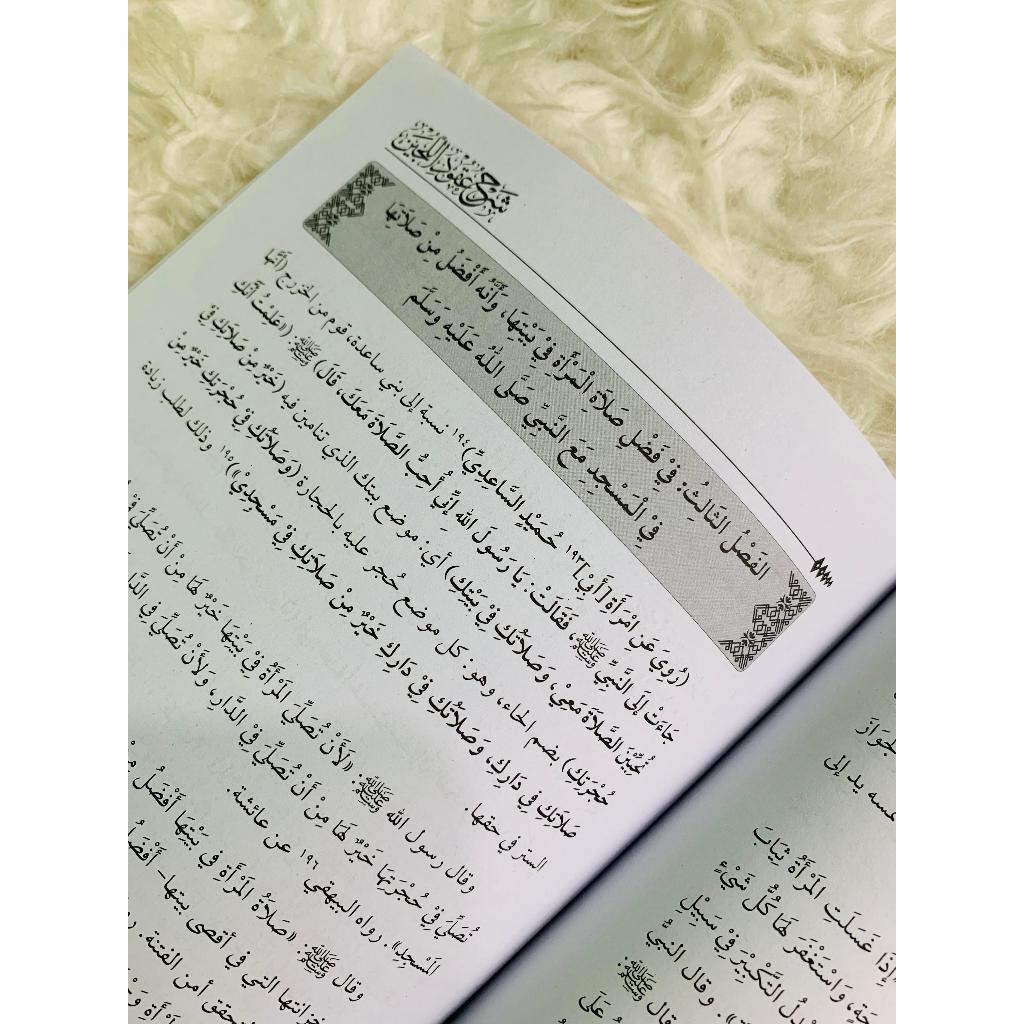 شرح عقود اللجين
الفَصْلُ الثَّالِثُ: فِيْ فَضْلِ صَلَاةِ الْمَرْأَةِ فِيْ بَيْتِهَا، وَأَنَّهُ أَفْضَلُ مِنْ صَلَاتِهَا
فِيْ الْمَسْجِدِ مَعَ النَّبِيِّ صَلَّى اللهُ عَلَيْهِ وَسَلَّم
(رُوِيَ عَنِ امْرَأَةِ [أَبِيْ]١٩٣ حُمَيْدٍ السَّاعِدِيِّ)١٩٤ نسبة إلى بني ساعدة، قوم من الخزرج (أَنَّهَا
جَاءَتْ إِلَى النَّبِيِّ ﷺ، فَقَالَتْ: يَا رَسُولَ اللهِ إِنِّي أُحِبُّ الصَّلَاةَ مَعَكَ، قَالَ) ﷺ: ((عَلِمْتُ أَنَّكِ
تُحِبِّيْنَ الصَّلَاةَ مَعِيْ، وَصَلَاتُكِ فِيْ بَيْتِكِ) أي: موضع بيتك الذي تنامين فيه (خَيْرٌ مِنْ صَلَاتِكِ فِيْ
حُجْرَتِكِ) بضم الحاء، وهو: كل موضع حُجر عليه بالحجارة (وَصَلَاتُكِ فِيْ حُجْرَتِكِ خَيْرٌ مِنْ
صَلَاتِكِ فِي دَارِكِ، وَصَلَاتُكِ فِيْ دَارِكِ خَيْرٌ مِنْ صَلَاتِكِ فِيْ مَسْجِدِيْ))١٩٥ وذلك لطلب زيادة
الستر في حقها.
وقال رسول الله ﷺ: «لَأَنْ تُصَلِّيَ الْمَرْأَةُ فِيْ بَيْتِهَا خَيْرٌ لَهَا مِنْ أَنْ تُصَلِّيَ فِيْ
تُصَلِّيَ فِيْ حُجْرَتِهَا خَيْرٌ لَهَا مِنْ أَنْ تُصَلِّيَ فِيْ الدَّارِ، وَلَأَنْ تُصَلِّيَ فِي الدَّارِ
الْمَسْجِدِ». رواه البيهقي١٩٦ عن عائشة.
وقال ﷺ: «صَلَاةُ الْمَرْأَةِ فِي بَيْتِهَا أَفْضَلُ
خزانتها التي في أقصى بيتها- أَفْضَلُ
تحقق أمن الفتنة.
الجَوَازَ
يد إلى
إِذَا غَسَلَتِ الْمَرْأَةُ ثِيَابَ
وَاسْتَغْفَرَ لَهَا كُلُّ شَيْءٍ
التَّكْبِيْرَ فِيْ سَبِيْلِ
وقال النبيُّ
قال ﷺ:
عَلَى